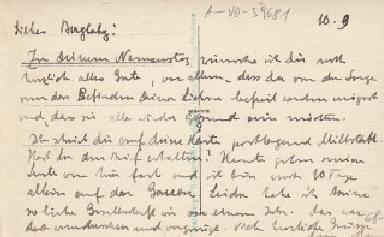 A-VII-39681
10.9
Lieber
In deinem Namenstag, wünsche ich dir noch
herzlich alles Gute, vor allem, dass du von der Sorge
um das Befinden deiner Lieben befreit werden mögest
und, dass sie alle wieder gesund sein möchten.
Ich schrieb dir auf deine Karte postlagernd Millstatt.
Hast du den Brief erhalten? Heute gehen meine
Leute von hier fort und ich bin noch 10 Tage
allein auf der. Leider habe ich keine
so liebe wie vor einem Jahr. Das war
und. Viele herzliche Grüsse